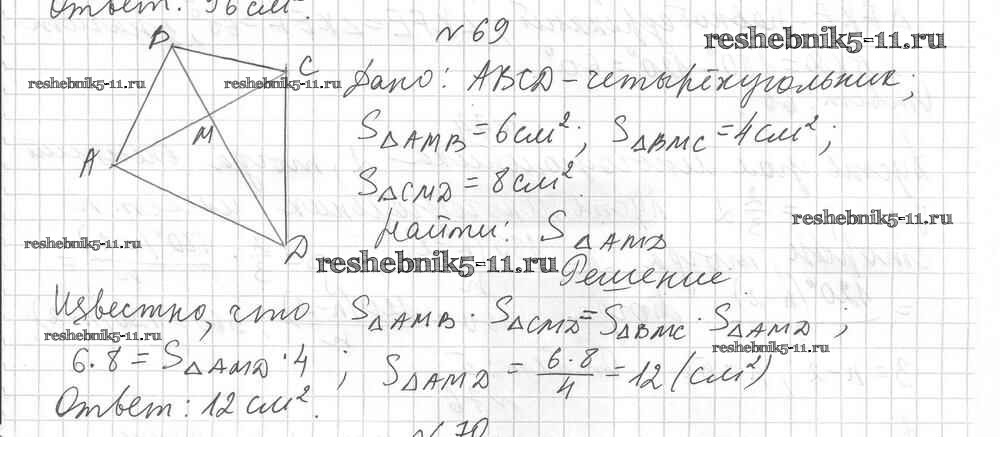 Ответ: 96 см².
N 69
reshebnik5-11.ru
B
C
reshebnik5-11.ru reshebnik5-11.ru
Дано: ABCD – четырёхугольник;
M
S△AMB = 6 см²; S△BMC = 4 см²;
A
S△CMD = 8 см².
reshebnik5-11.ru
Найти: S△AMD
reshebnik5-11.ru
D
reshebnik5-11.ru
Решение
Известно, что S△AMB · S△CMD = S△BMC · S△AMD;
reshebnik5-11.ru
reshebnik5-11.ru
6·8 = S△AMD · 4; S△AMD = 6·8/4 = 12 (см²)
Ответ: 12 см².
N 70